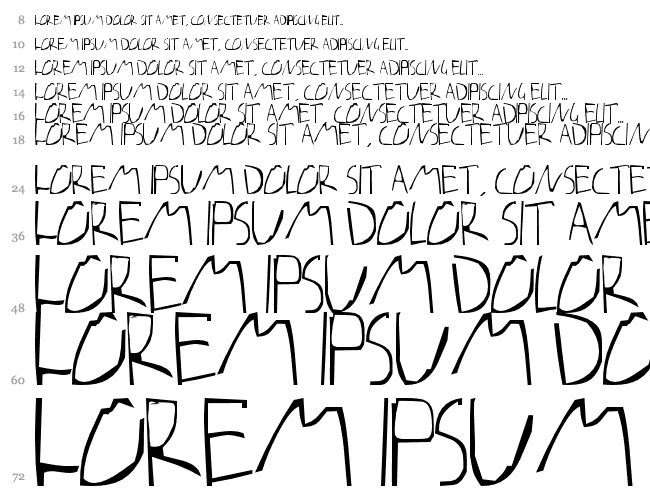 8 LOREM IPSUM DOLOR SIT AMET, CONSECTETUER ADIPISCING ELIT...
10 LOREM IPSUM DOLOR SIT AMET, CONSECTETUER ADIPISCING ELIT...
12 LOREM IPSUM DOLOR SIT AMET, CONSECTETUER ADIPISCING ELIT...
14 LOREM IPSUM DOLOR SIT AMET, CONSECTETUER ADIPISCING ELIT...
16 LOREM IPSUM DOLOR SIT AMET, CONSECTETUER ADIPISCING ELIT...
18 LOREM IPSUM DOLOR SIT AMET, CONSECTETUER ADIPISCIN
24 LOREM IPSUM DOLOR SIT AMET, CONSECTE
36 LOREM IPSUM DOLOR SIT AME
48 LOREM IPSUM DOLOR
60 LOREM IPSUM DO
72 LOREM IPSUM